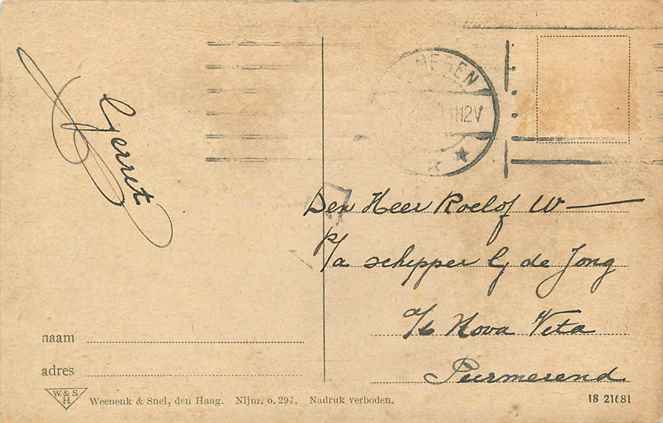 Gerret
MEGEN
1112V
Den Heer Roelof W
P/a schipper G de Jong
a/b Nova Vita
Purmerend
naam
adres
W & S.
H.
Weenenk & Snel, den Haag. Nijm. o. 297. Nadruk verboden.
18 21681